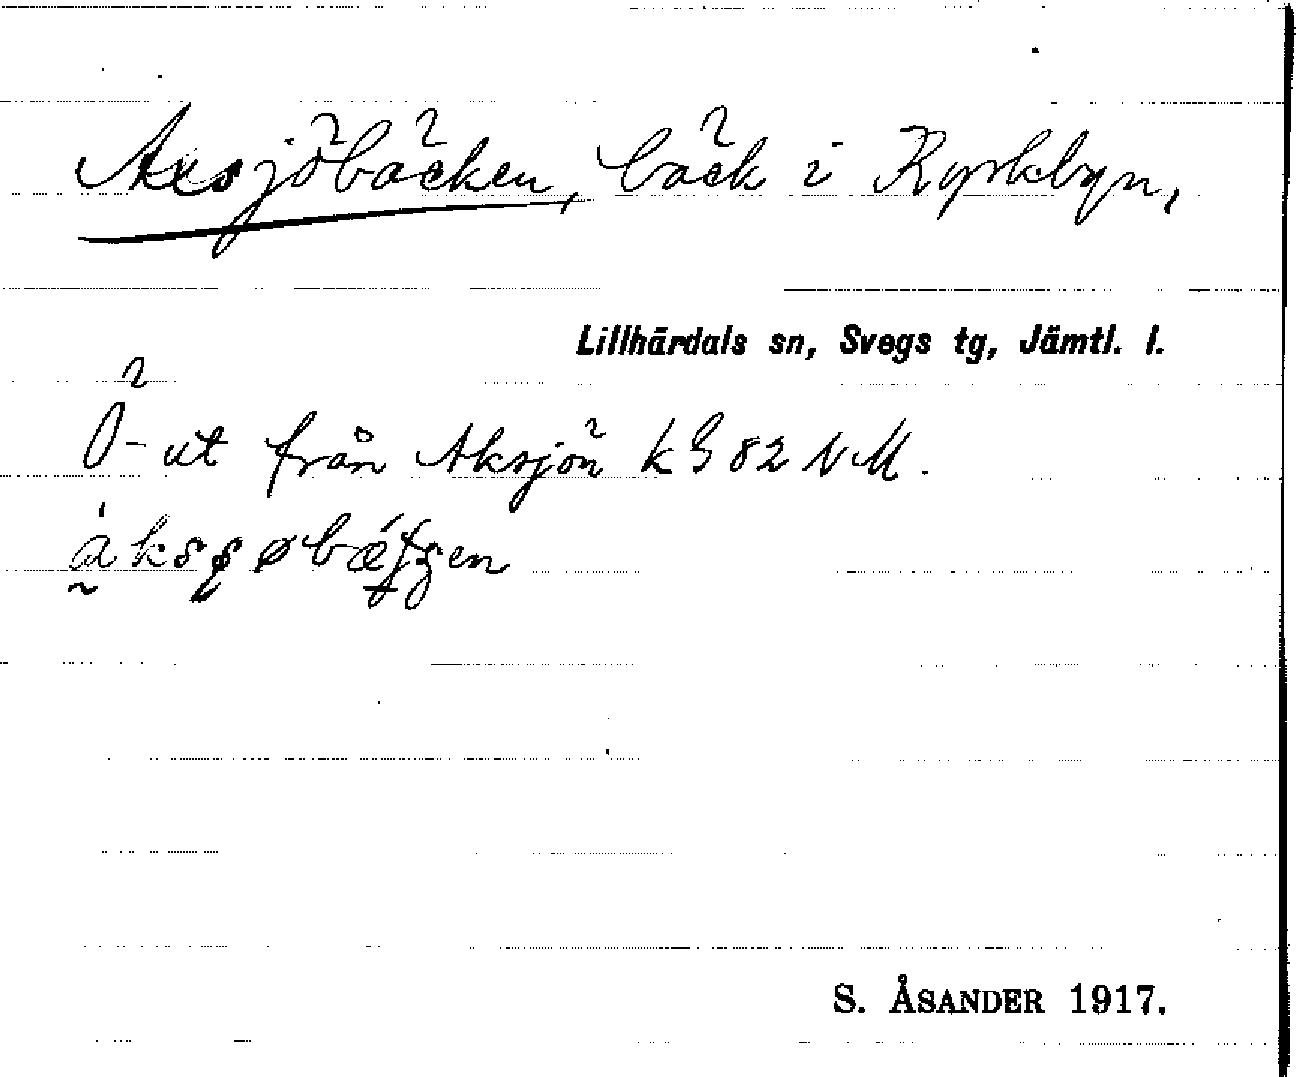 Axsjöbäcken, bäck i Kyrkbyn,
Lillhärdals sn, Svegs tg, Jämtl. l.
Ö-ut från Aksjön k G 82 N M.
S. ÅSANDER 1917.